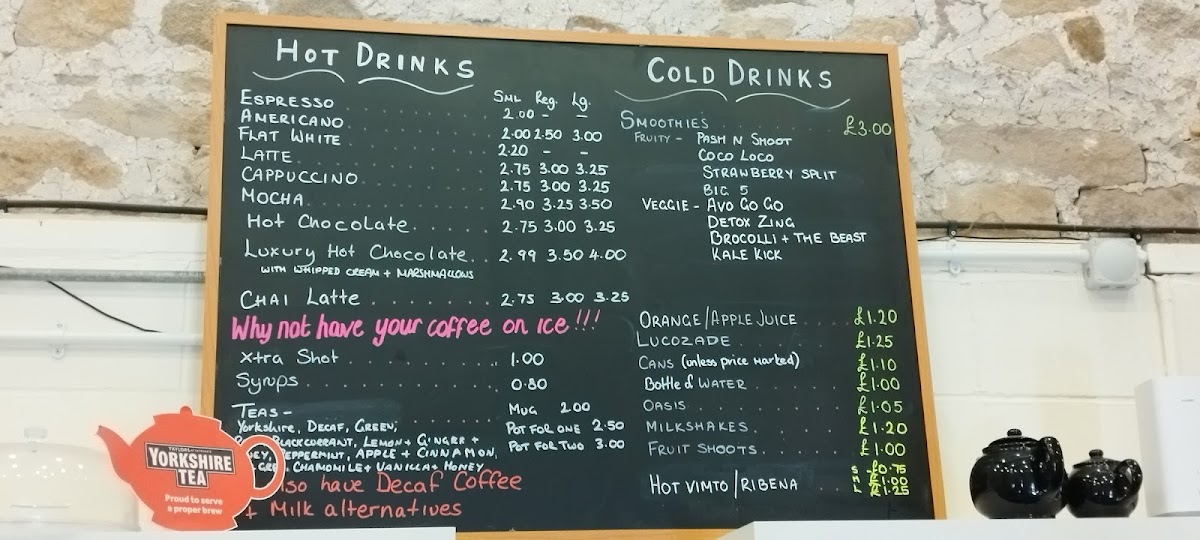 HOT DRINKS
SML Reg. Lg.
ESPRESSO 2.00 - -
AMERICANO 2.00 2.50 3.00
FLAT WHITE 2.20 - -
LATTE 2.75 3.00 3.25
CAPPUCCINO 2.75 3.00 3.25
MOCHA 2.90 3.25 3.50
Hot Chocolate 2.75 3.00 3.25
Luxury Hot Chocolate 2.99 3.50 4.00
WITH WHIPPED CREAM + MARSHMALLOWS
CHAI Latte 2.75 3.00 3.25
Why not have your coffee on ice!!!
Xtra Shot 1.00
Syrups 0.80
TEAS - MUG 2.00
Yorkshire, DECAF, GREEN, POT FOR ONE 2.50
BLACKCURRANT, LEMON + GINGER + POT FOR TWO 3.00
PEPPERMINT, APPLE + CINNAMON,
CHAMOMILE + VANILLA + HONEY
also have Decaf Coffee
+ Milk alternatives
COLD DRINKS
SMOOTHIES £3.00
FRUITY - PASH N SHOOT
COCO LOCO
STRAWBERRY SPLIT
BIG 5
VEGGIE - AVO GO GO
DETOX ZING
BROCOLLI + THE BEAST
KALE KICK
ORANGE/APPLE JUICE £1.20
LUCOZADE £1.25
CANS (unless price marked) £1.10
Bottle of WATER £1.00
OASIS £1.05
MILKSHAKES £1.20
FRUIT SHOOTS £1.00
HOT VIMTO/RIBENA S - £0.75
M - £1.00
L £1.25
YORKSHIRE
TEA
Proud to serve
a proper brew